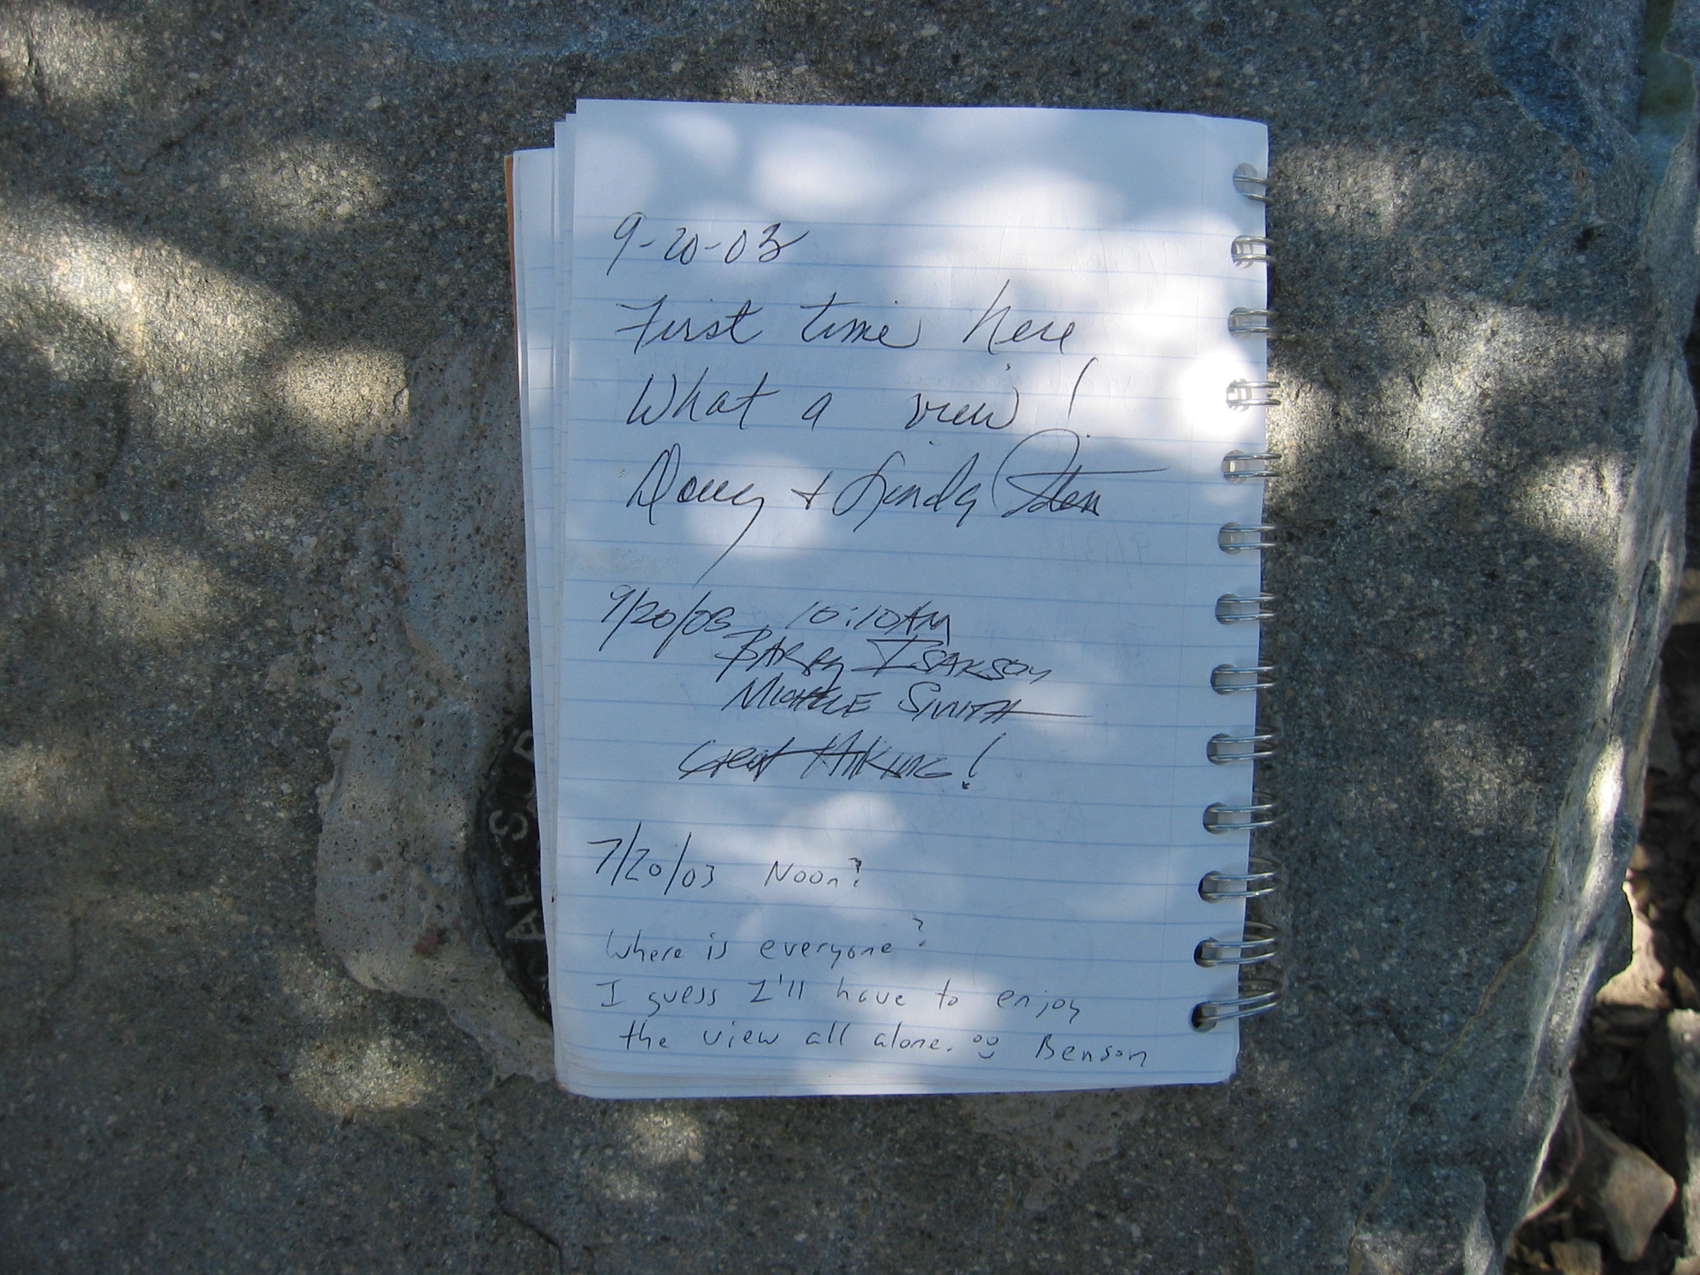 9-20-03
First time here
What a view!
Doug + Linda
9/20/03 10:10 AM
BARRY ISAKSON
MICHELE SMITH
Great HIKING!
7/20/03 Noon?
Where is everyone?
I guess I'll have to enjoy
the view all alone. Benson